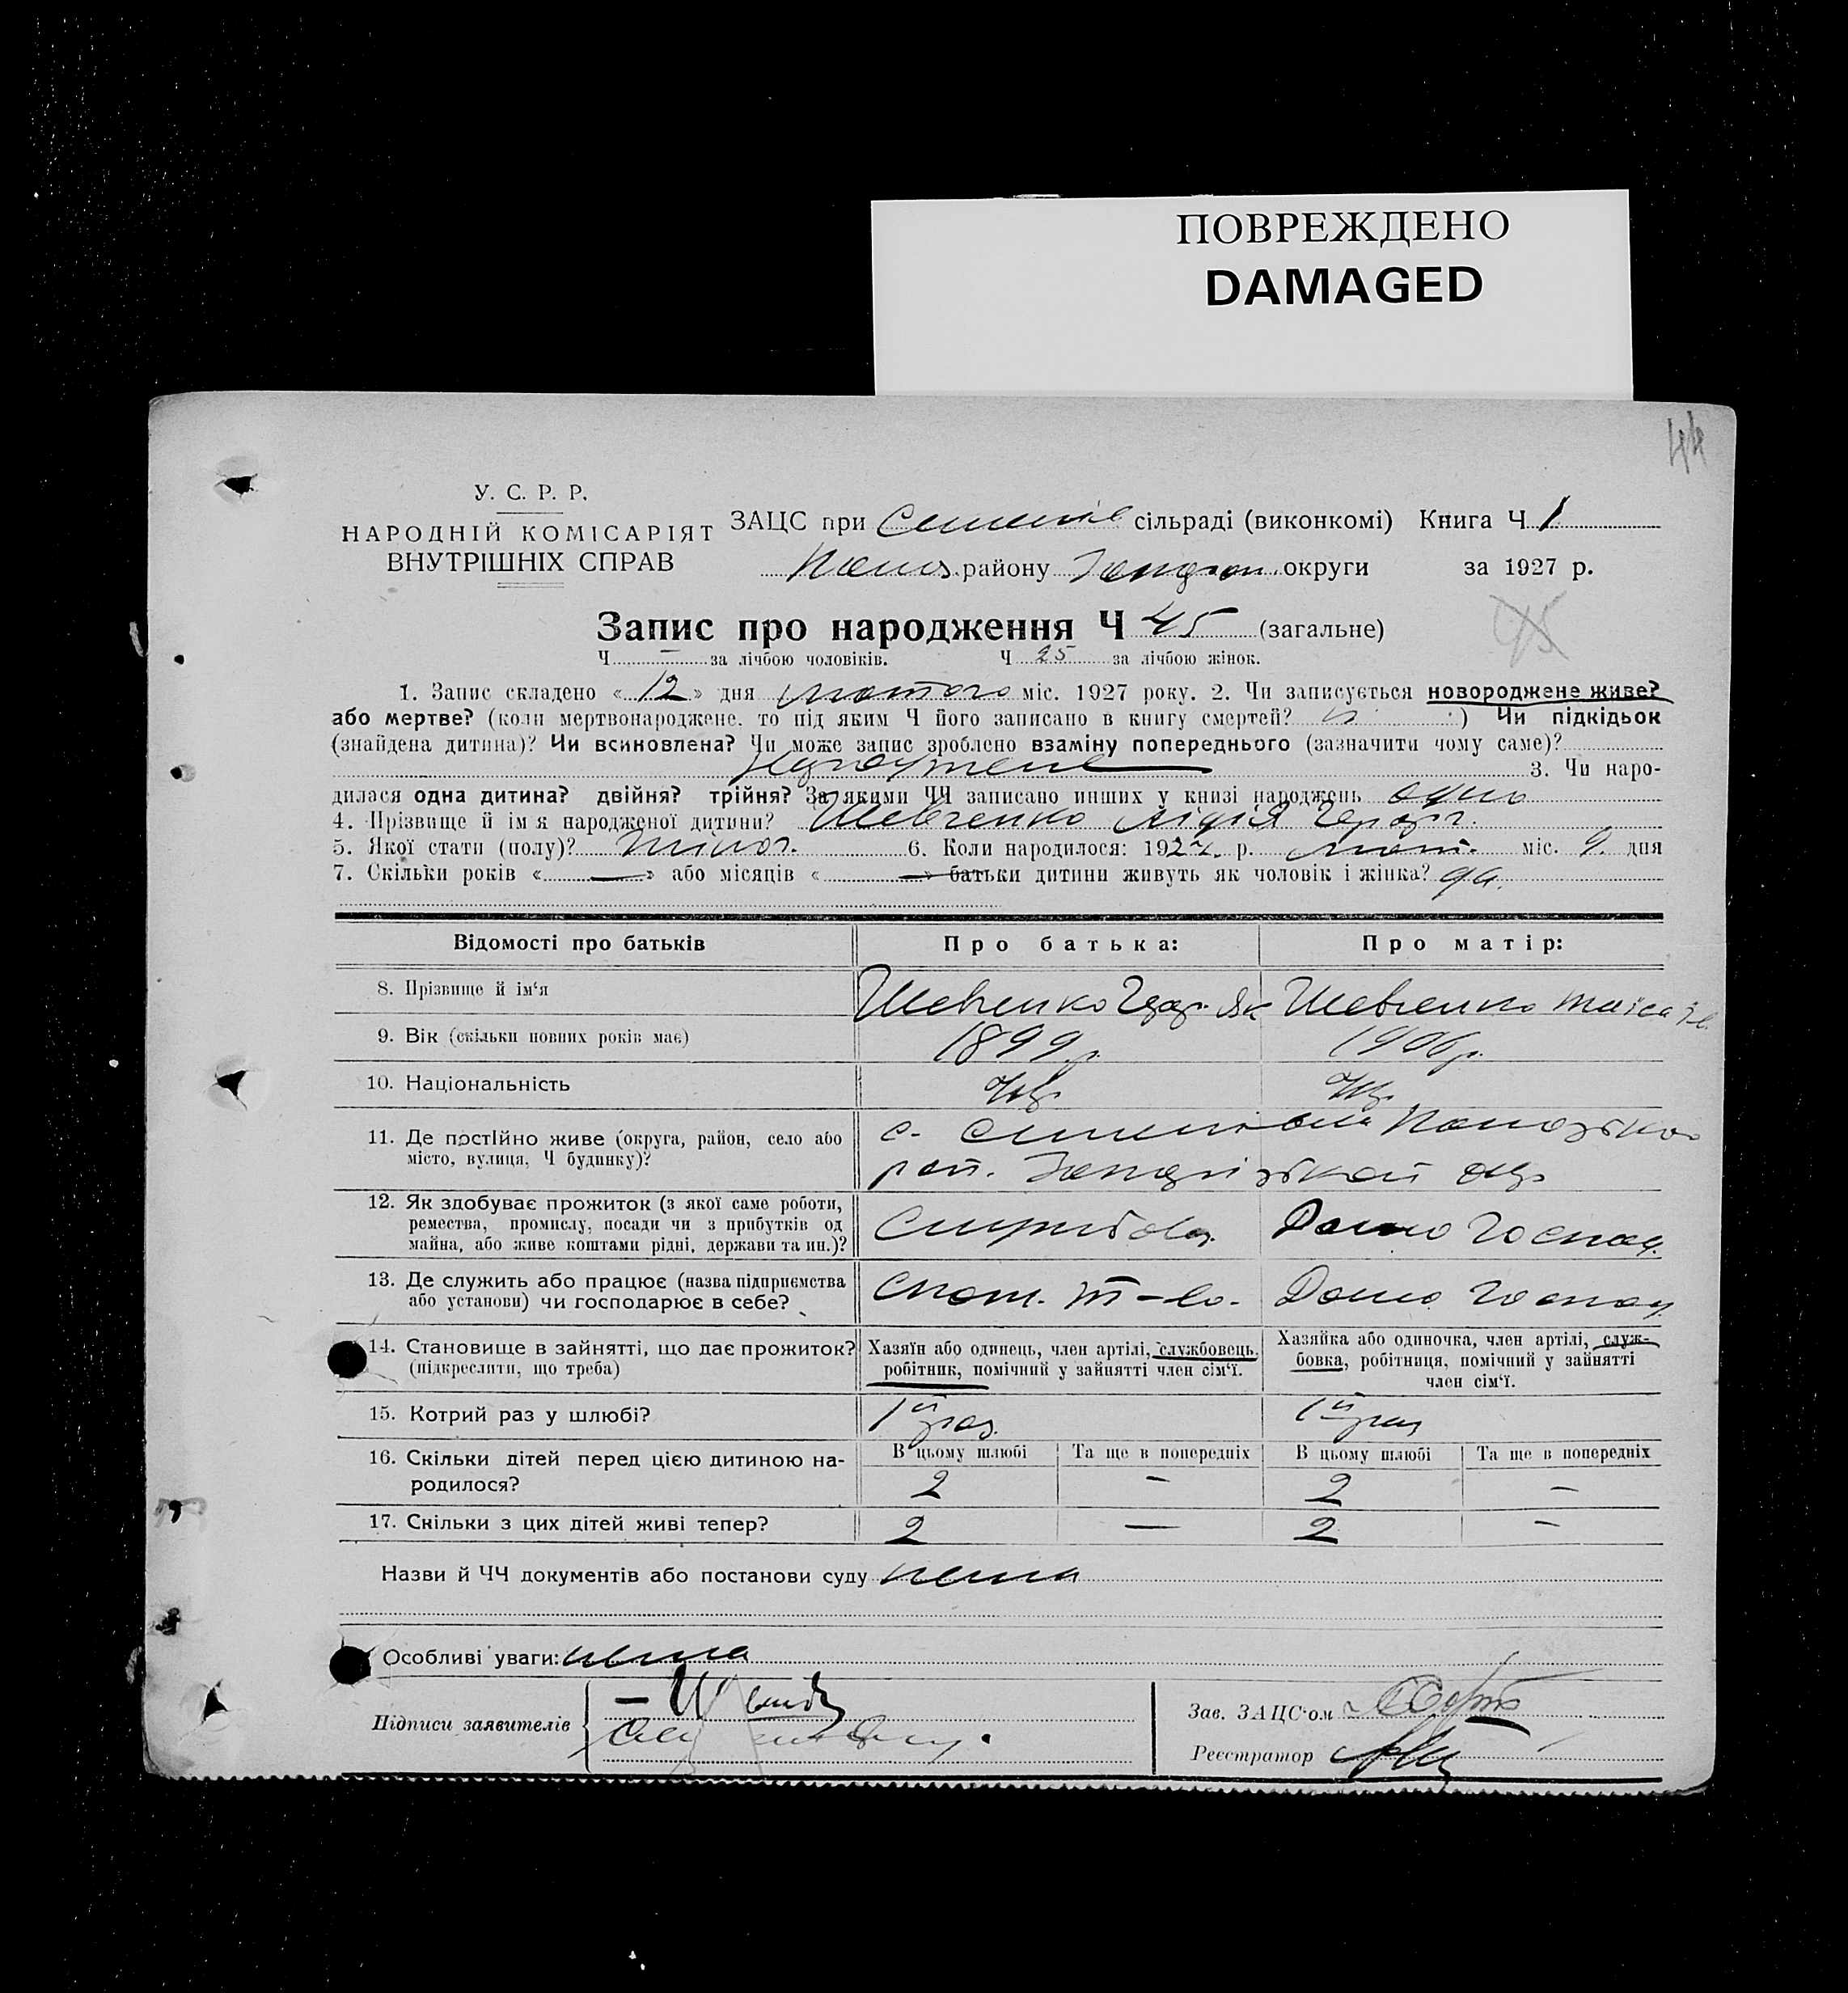 ПОВРЕЖДЕНО
DAMAGED
44
У. С. Р. Р.
НАРОДНІЙ КОМІСАРІЯТ
ВНУТРІШНІХ СПРАВ
ЗАЦС при сільраді (виконкомі) Книга Ч 1
району округи за 1927 р.
Запис про народження Ч 45 (загальне)
45
Ч — за лічбою чоловіків. Ч 25 за лічбою жінок.
1. Запис складено « 12 » дня лютого міс. 1927 року. 2. Чи записується новороджене живе?
або мертве? (коли мертвонароджене, то під яким Ч його записано в книгу смертей? ) Чи підкідьок
(знайдена дитина)? Чи всиновлена? Чи може запис зроблено взаміну попереднього (зазначити чому саме)?
3. Чи наро-
дилася одна дитина? двійня? трійня? За якими ЧЧ записано инших у книзі народжень одно
4. Прізвище й ім я народженої дитини? Шевченко Лідія
5. Якої стати (полу)? жіноч. 6. Коли народилося: 1927 р. лют. міс. 9. дня
7. Скільки років « — » або місяців « — » батьки дитини живуть як чоловік і жінка?
Відомості про батьків Про батька: Про матір:
8. Прізвище й ім‘я Шевченко Шевченко
9. Вік (скільки повних років має) 1899 р. 1906 р.
10. Національність Укр. Укр.
11. Де постійно живе (округа, район, село або
місто, вулиця, Ч будинку)?
с.
рай. окр
12. Як здобуває прожиток (з якої саме роботи,
ремества, промислу, посади чи з прибутків од
майна, або живе коштами рідні, держави та ин.)?
Домо Господ.
13. Де служить або працює (назва підприємства
або установи) чи господарює в себе?
Спож. т-во. Домо Господ.
14. Становище в зайнятті, що дає прожиток?
(підкреслити, що треба)
Хазяїн або одинець, член артілі, службовець,
робітник, помічний у зайнятті член сім‘ї.
Хазяйка або одиночка, член артілі, служ-
бовка, робітниця, помічний у зайнятті
член сім‘ї.
15. Котрий раз у шлюбі? 1й раз. 1й раз
16. Скільки дітей перед цією дитиною на-
родилося?
В цьому шлюбі Та ще в попередніх В цьому шлюбі Та ще в попередніх
2 — 2 —
17. Скільки з цих дітей живі тепер? 2 — 2 —
Назви й ЧЧ документів або постанови суду нема
Особливі уваги: нема
Підписи заявителів
Зав. ЗАЦС‘ом
Реєстратор